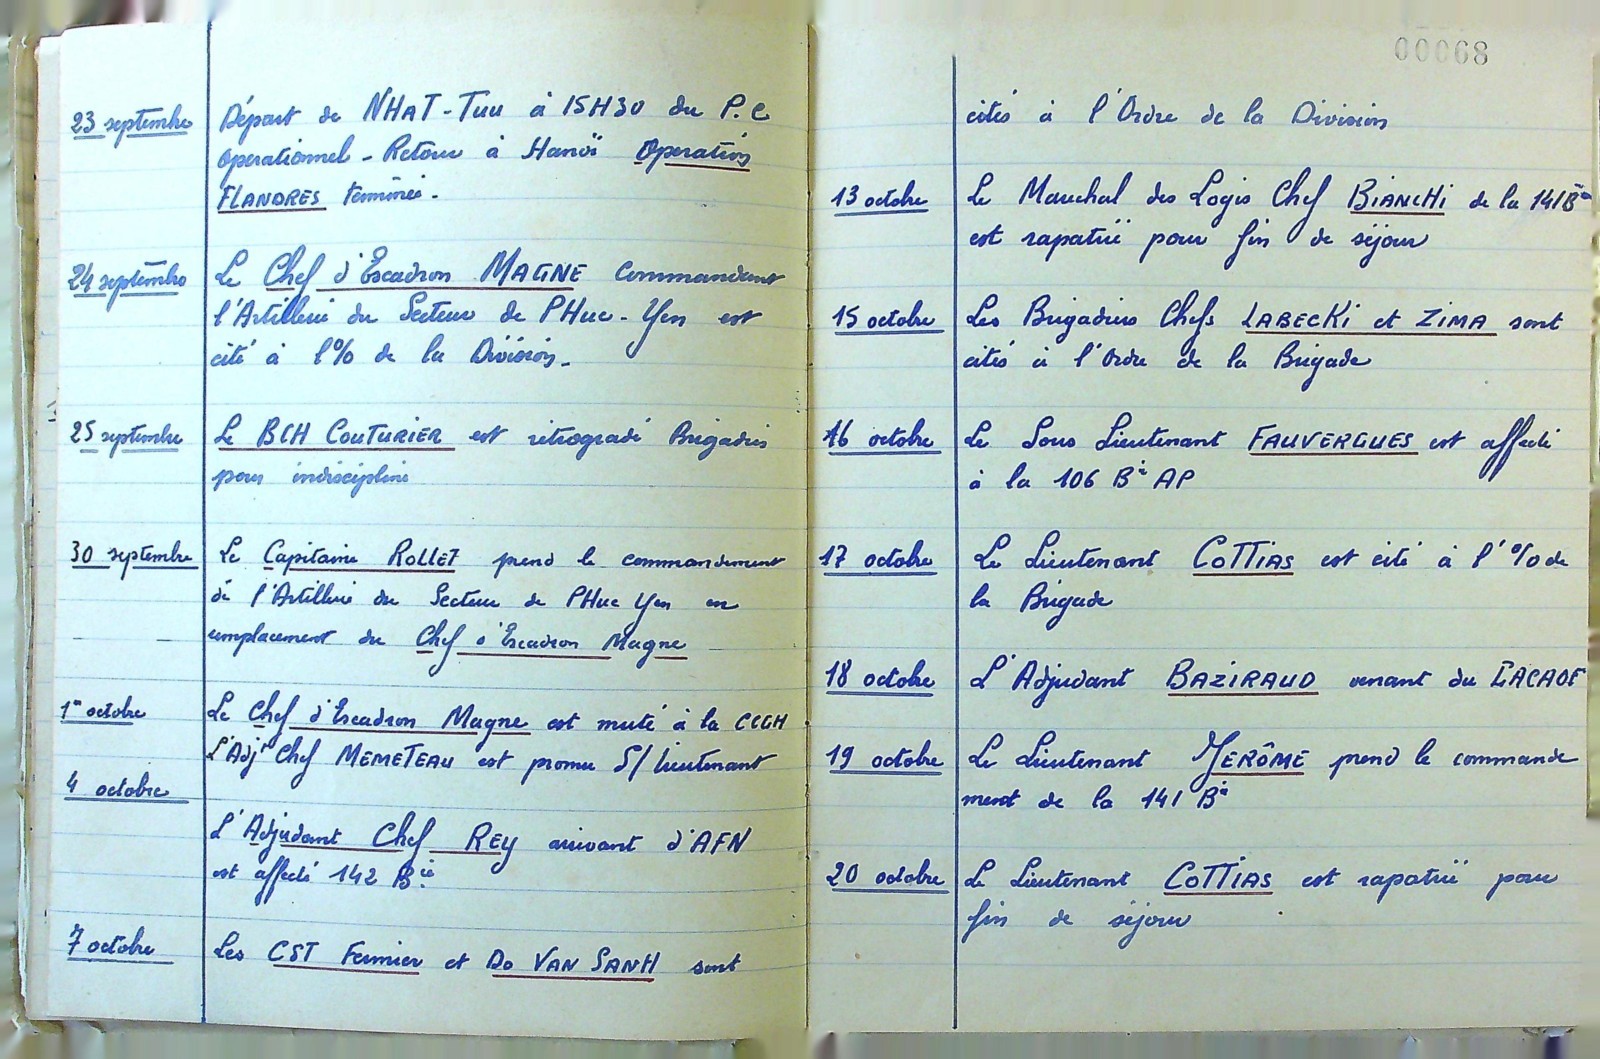 23 septembre
Départ de NHAT-TUU à 15H30 du P.C
Operationnel - Retour à Hanoï Operation
FLANDRES terminée -
24 septembre
Le Chef d'Escadron MAGNE commandant
l'Artillerie du Secteur de PHuc-Yen est
cité à l'% de la Division -
25 septembre
Le BCH COUTURIER est rétrogradé Brigadier
pour indiscipline
30 septembre
Le Capitaine ROLLET prend le commandement
de l'Artillerie du Secteur de PHuc Yen en
remplacement du Chef d'Escadron Magne
1er octobre
Le Chef d'Escadron Magne est muté à la CCGH
L'Adjt Chef MEMETEAU est promu S/Lieutenant
4 octobre
L'Adjudant Chef REY arrivant d'AFN
est affecté 142 Bie
7 octobre
Les CST Fermier et DO VAN SANH sont
00068
cités à l'Ordre de la Division
13 octobre
Le Marechal des Logis Chef BIANCHI de la 141 Bie
est rapatrié pour fin de séjour
15 octobre
Les Brigadiers Chefs LABECKI et ZIMA sont
cités à l'Ordre de la Brigade
16 octobre
Le Sous Lieutenant FAUVERGUES est affecté
à la 106 Bie AP
17 octobre
Le Lieutenant COTTIAS est cité à l'% de
la Brigade
18 octobre
L'Adjudant BAZIRAUD venant du GACAOF
19 octobre
Le Lieutenant JERÔME prend le commande
ment de la 141 Bie
20 octobre
Le Lieutenant COTTIAS est rapatrié pour
fin de séjour